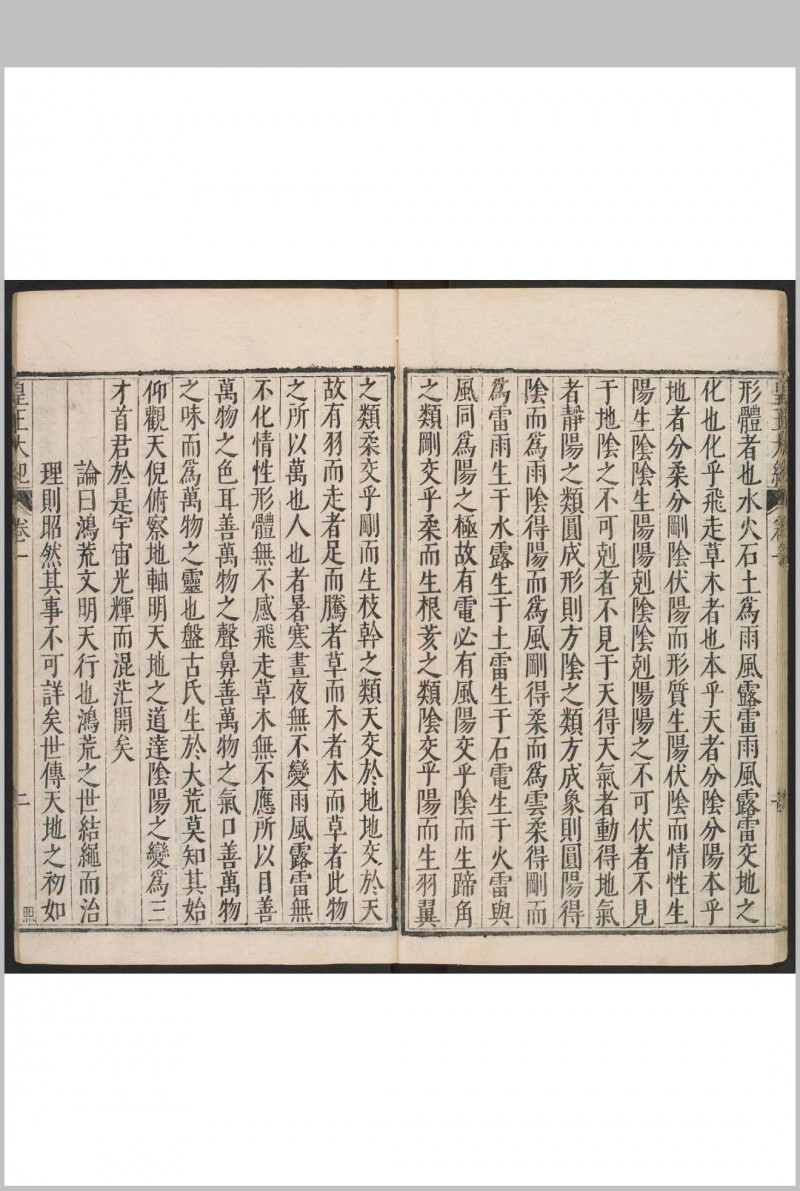 形體者也水火石土爲雨風露雷雨風露雷交地之
化也化乎飛走草木者也本乎天者分陰分陽本乎
地者分柔分剛陰伏陽而形質生陽伏陰而情性生
陽生陰陰生陽陽剋陰陰剋陽陽之不可伏者不見
于地陰之不可剋者不見于天得天氣者動得地氣
者靜陽之類圓成形則方陰之類方成象則圓陽得
陰而爲雨陰得陽而爲風剛得柔而爲雲柔得剛而
爲雷雨生于水露生于土雷生于石電生于火雷與
風同爲陽之極故有電必有風陽交乎陰而生蹄角
之類剛交乎柔而生根荄之類陰交乎陽而生羽翼
之類柔交乎剛而生枝幹之類天交於地地交於天
故有羽而走者足而騰者草而木者木而草者此物
之所以萬也人也者暑寒晝夜無不變雨風露雷無
不化情性形體無不感飛走草木無不應所以目善
萬物之色耳善萬物之聲鼻善萬物之氣口善萬物
之味而爲萬物之靈也盤古氏生於大荒莫知其始
仰觀天倪俯察地軸明天地之道達陰陽之變爲三
才首君於是宇宙光輝而混茫開矣
論曰鴻荒文明天行也鴻荒之世結繩而治
理則昭然其事不可詳矣世傳天地之初如
皇王大紀 卷一 二 熙